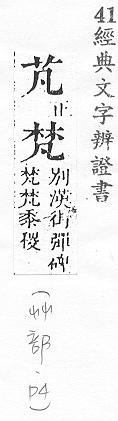 41 經典文字辨證書
芃 正
梵 別漢衛彈碑
梵梵黍稷
(艸部.p4)